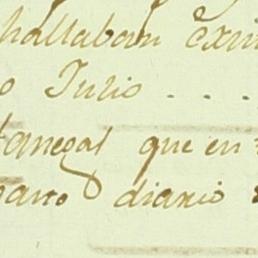 hallaban exis
o Julio ....
fanegas que en
parto diario